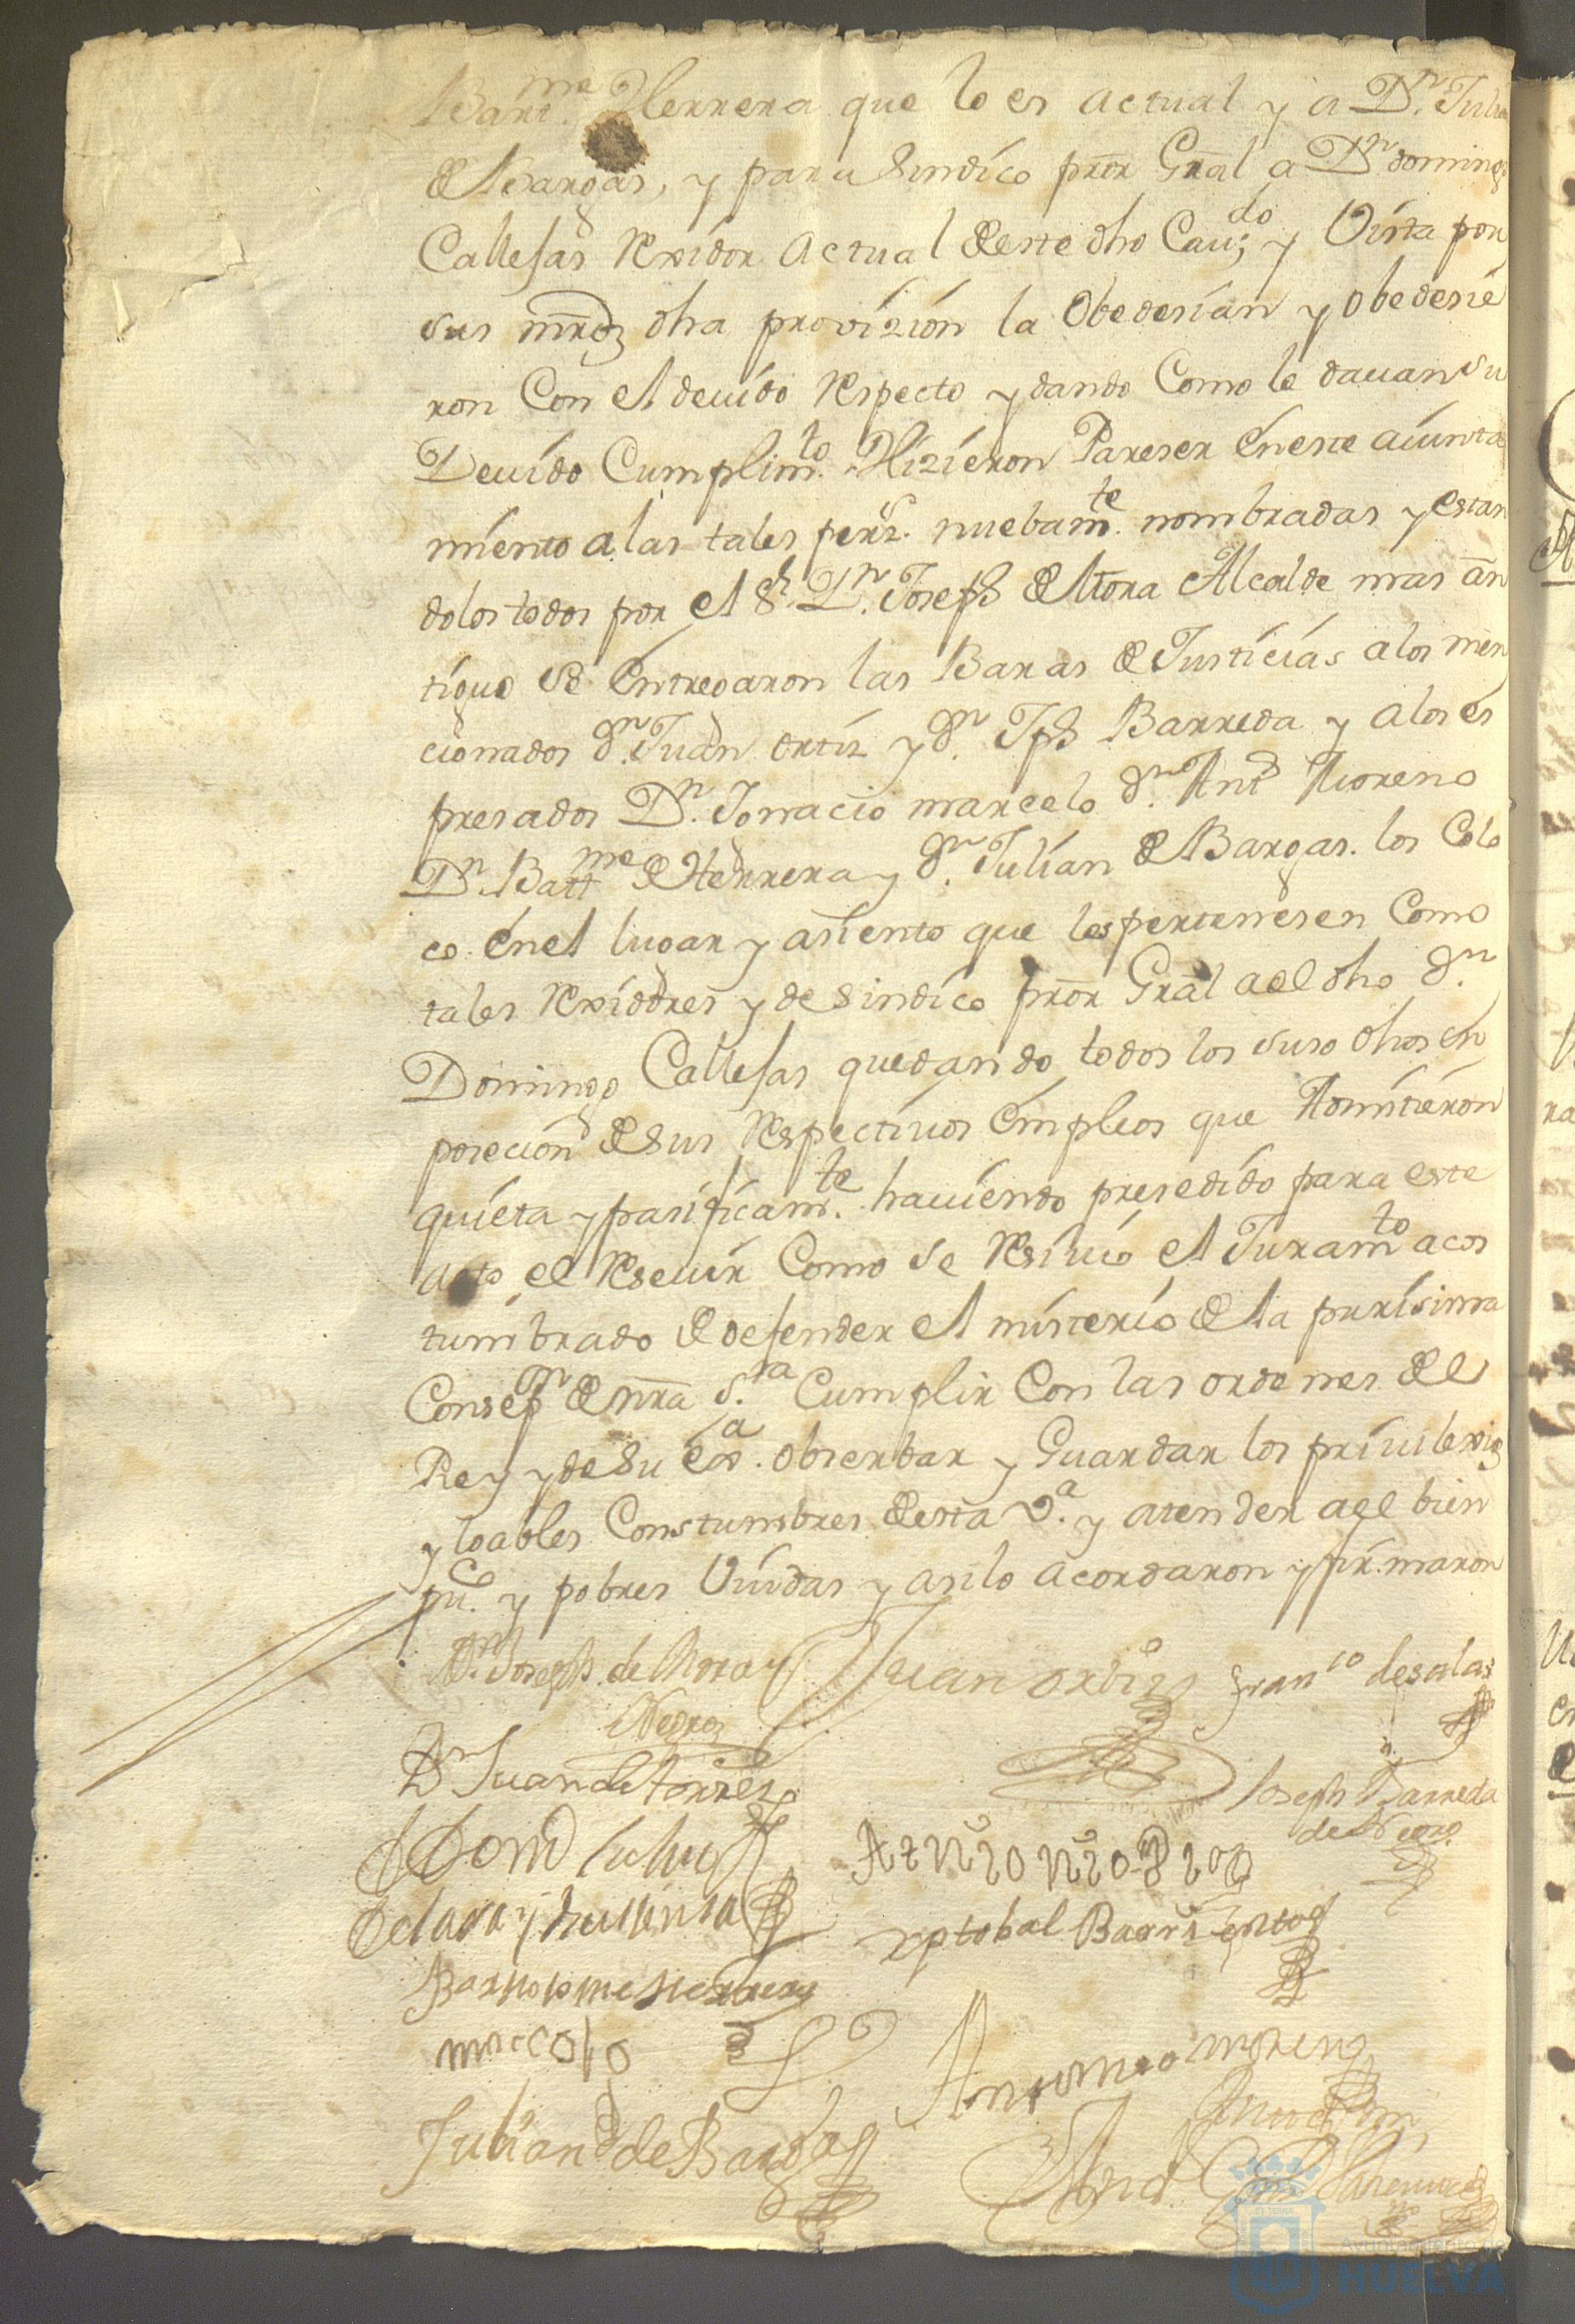 Bart.me Herrera que lo es actual y a Dn. Julian
de Bargas, y para Sindico pror Gral a Dn domingo
Callesas Rexidor Actual de este dho Caudo y Vista por
sus mrds dha provizion la Obedesian y obedesie
ron Con el deuido Respecto y dando Como le dauan su
Deuido Cumplimto. Hizieron Pareser en este aiunta
miento a las tales pers. nuebamte. nombradas y estan
dolos todos por el Sr. Dn. Joseph de Mora Alcalde mas an
tiguo se entregaron las Baras de Justicias a los men
cionados dn. Juan ortiz y dn. Jph Barreda y a los es
presados Dn. Ignacio marcelo dn. Anto Moreno
Dn. Bartme de Herrera y dn. Julian de Bargas. los Colo
co en el lugar y asiento que les pertenesen Como
tales Rexidores y de Sindico pror Gral a el dho dn.
Domingo Callesas quedando todos los suso dhos en
posecion de sus Respectiuos empleos que Admitieron
quieta y pasificamte. hauiendo presedido para este
acto el Reseuir Como se Resiuio el Juramto acos
tumbrado de defender el misterio de la purisima
Consepn de nra S.ra Cumplir Con las ordenes del
Rey y de su exa. obserbar y Guardar los priuilexios
y loables Constumbres de esta va. y atender a el bien
puco. y pobres Viudas y asi lo acordaron y firmaron
Dn. Joseph de Mora y
Negron
Juan ortiz
Franco de salas
Dn Juan de torres
Joseph Barreda
Antonio
xptobal Barrientos
Bartholome Herrera
Antonio moreno
Julian de Bargas
Ayuntamiento de
HUELVA